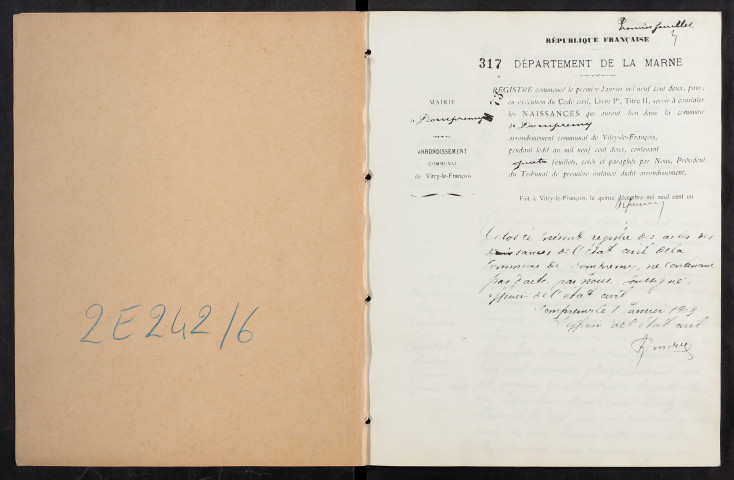 2E242/6
Premier feuillet
RÉPUBLIQUE FRANÇAISE
317 DÉPARTEMENT DE LA MARNE
MAIRIE
de Dompremy
ARRONDISSEMENT
COMMUNAL
de Vitry-le-François
REGISTRE commencé le premier Janvier mil neuf cent deux, pour,
en exécution du Code civil, Livre Ier, Titre II, servir à constater
les NAISSANCES qui auront lieu dans la commune
de Dompremy
arrondissement communal de Vitry-le-François,
pendant ledit an mil neuf cent deux, contenant
quatre feuillets, cotés et paraphés par Nous, Président
du Tribunal de première instance dudit arrondissement.
Fait à Vitry-le-François, le quinze décembre mil neuf cent un
Clos le présent registre des actes des
naissances de l'état civil de la
Commune de Dompremy, ne contenant
pas d'acte, par nous, soussigné,
officier de l'état civil
Dompremy le 1 Janvier 1903
L'officier de l'état civil